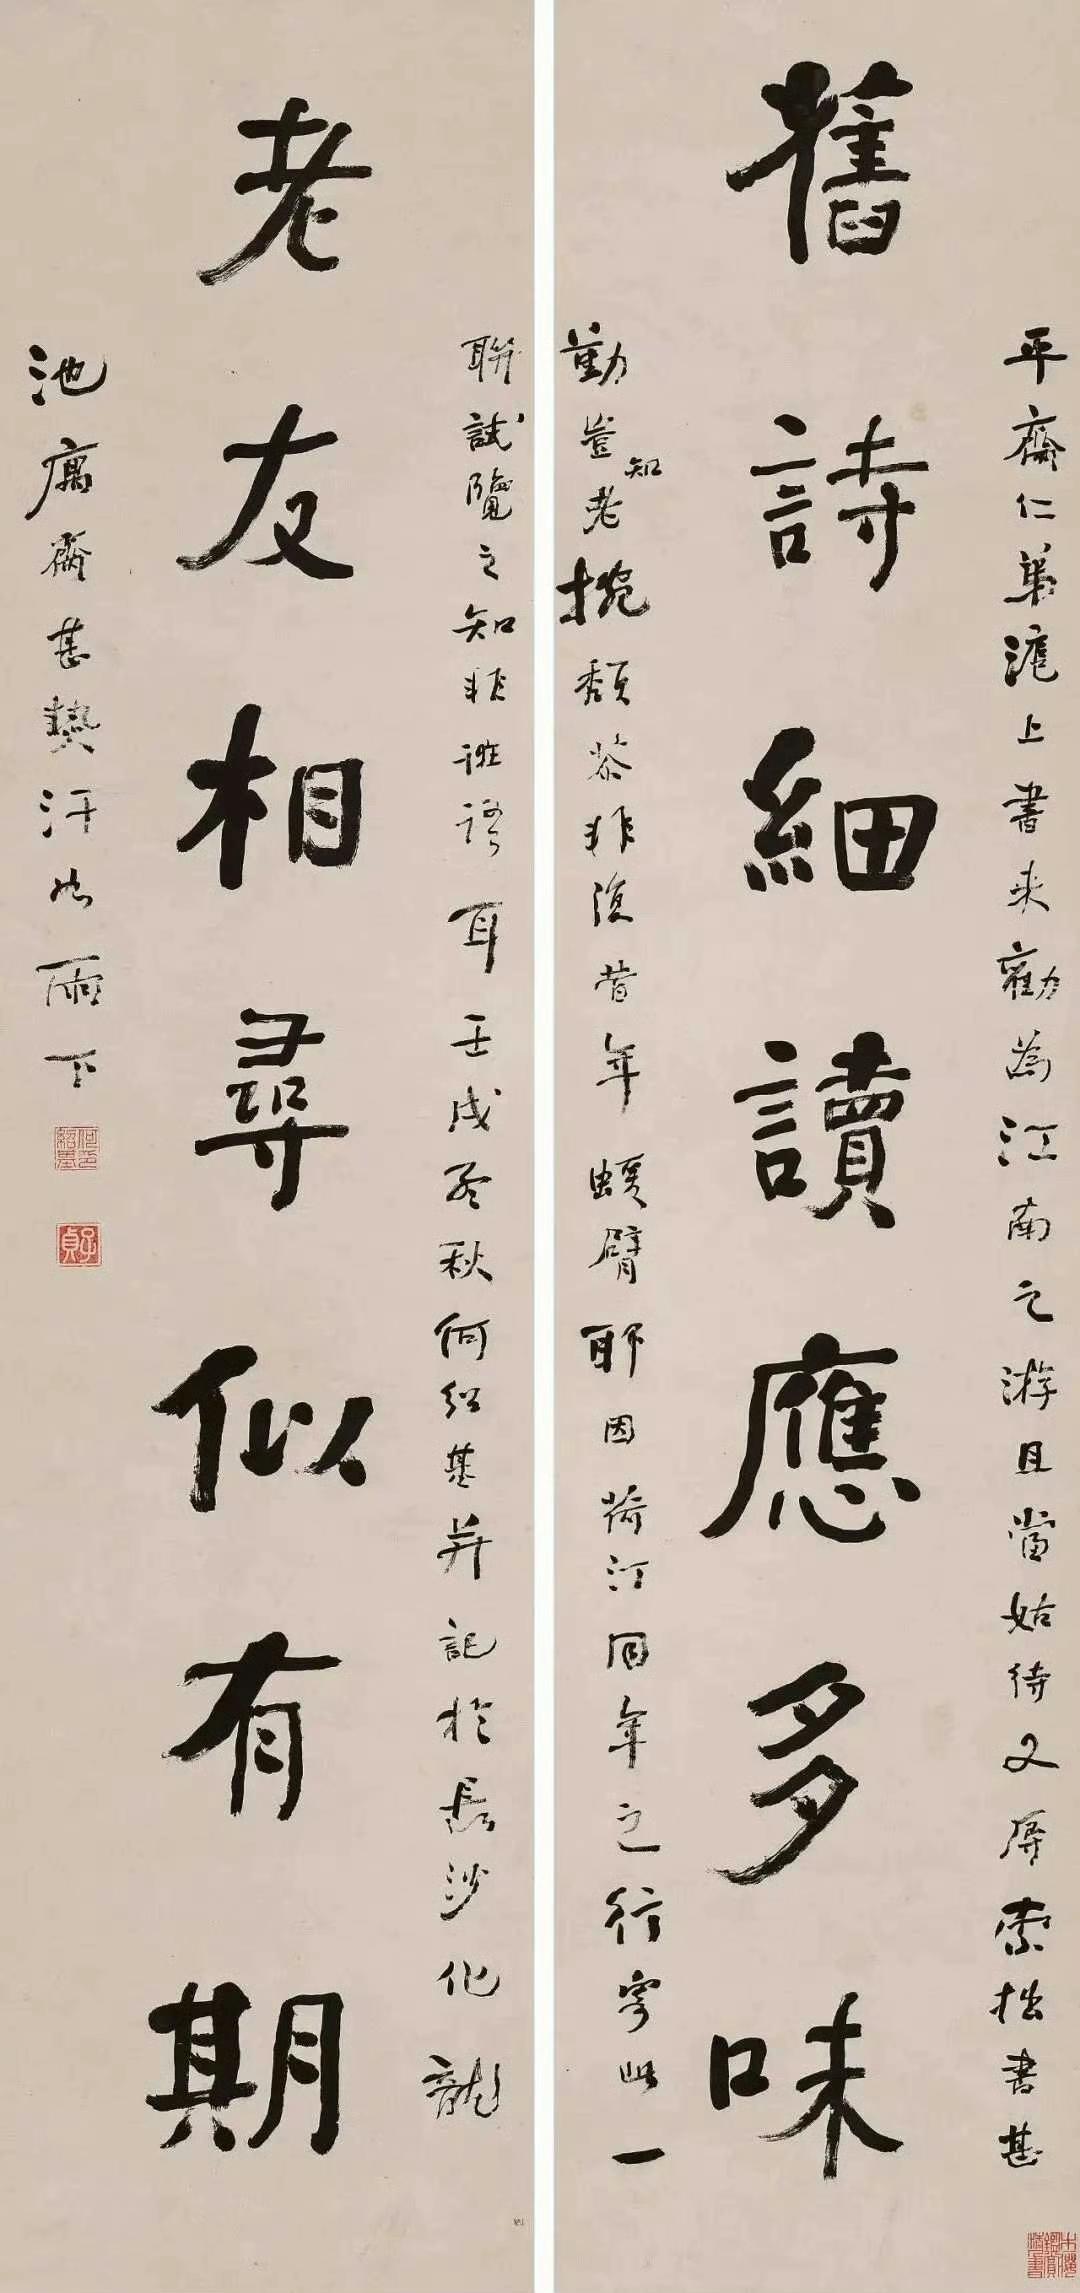 舊詩細讀應多味
平齋仁弟滬上書来勸為江南之游且當姑待又屏索拙書甚
勤豈知老捥頹苶非復昔年蝯臂耶因荷汀同年之行寄此一
老友相尋似有期
聯試覽之知非誑語耳壬戌孟秋何紹基并記於長沙化龍
池寓齋甚熱汗如雨下
何紹基印
子貞